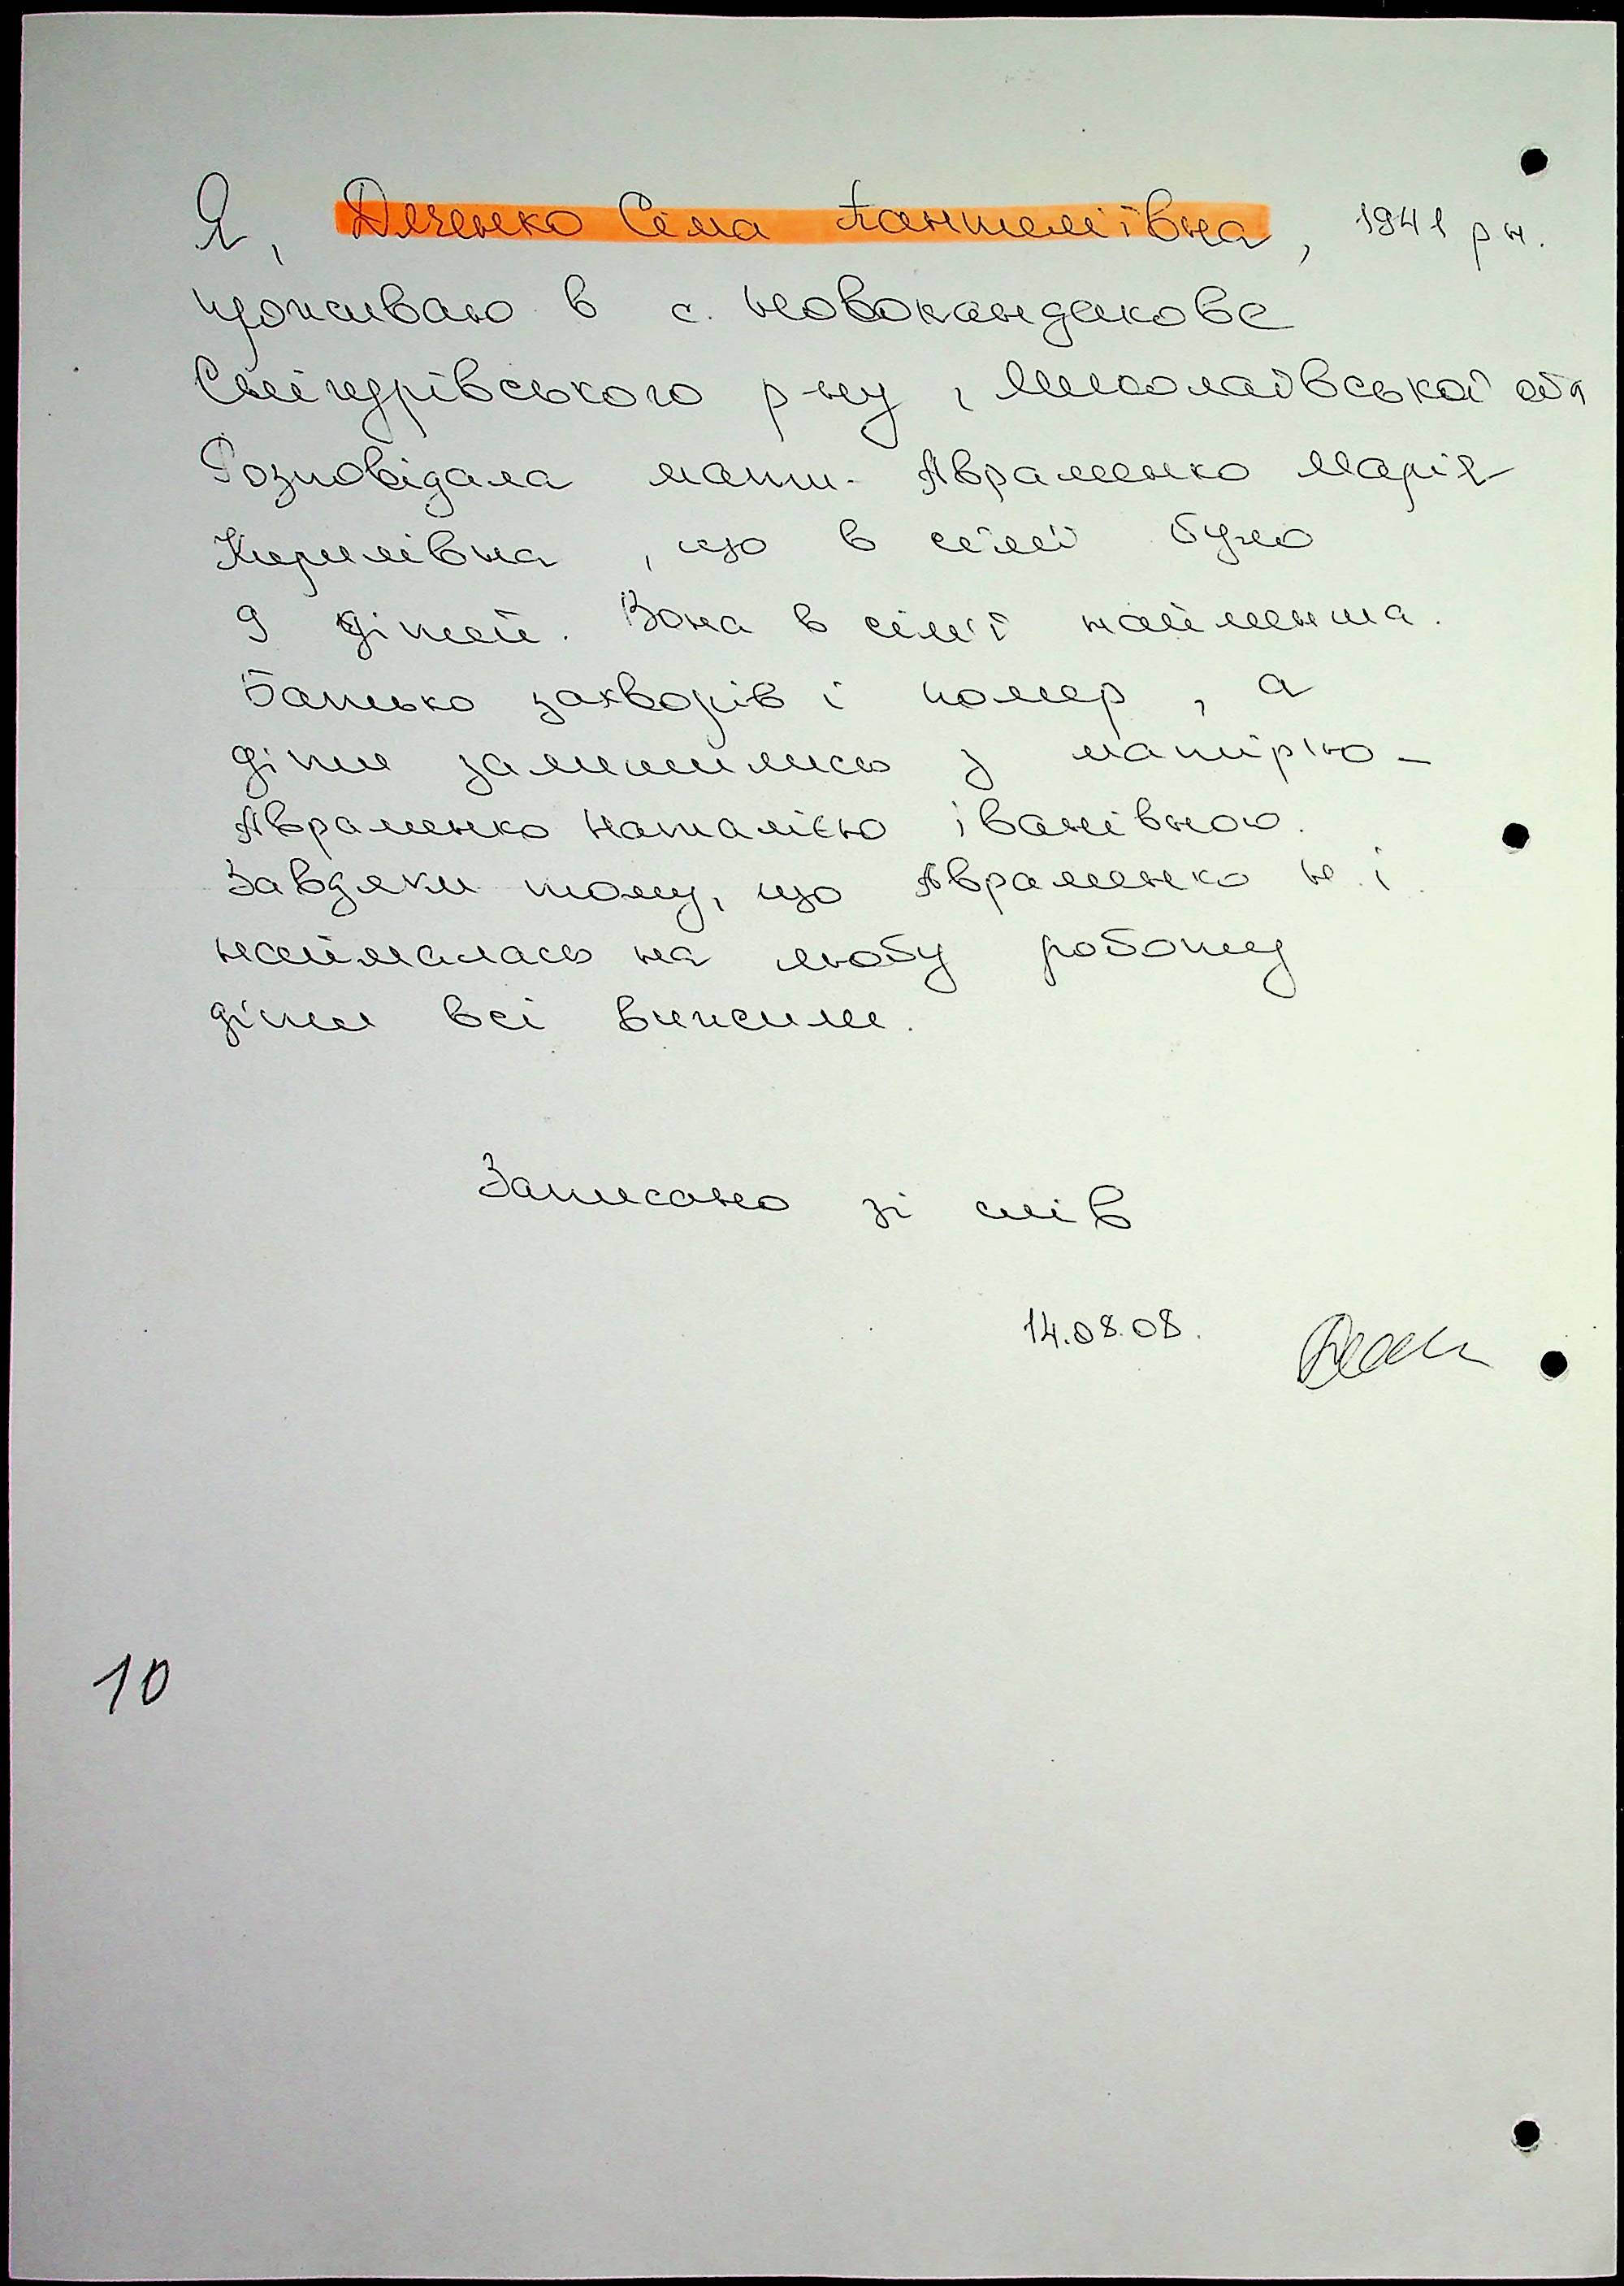 Я, Дяченко Сіма Пантеліївна, 1941 р н.
проживаю в с. Новокандакове
Снігурівського р-ну, Миколаївської обл
Розповідала мати - Авраменко Марія
Кирилівна, що в сімї було
9 дітей. Вона в сім'ї найменша.
Батько захворів і помер, а
діти залишились з матірью -
Авраменко Наталією Іванівною.
Завдяки тому, що Авраменко Н. І.
наймалась на любу роботу
діти всі вижили.
Записано зі слів
14.08.08.
10